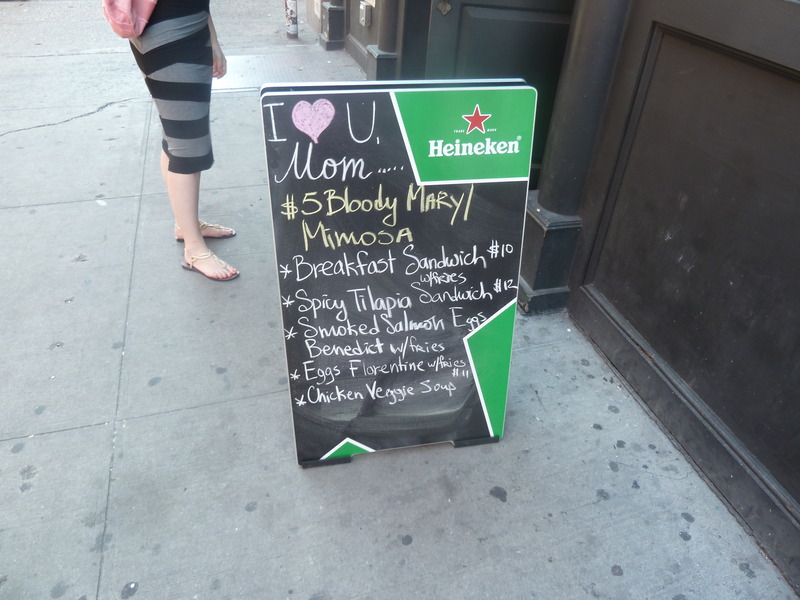 I ♥ U,
Mom.....
TRADE MARK
Heineken®
$5 Bloody MARY/
MimosA
*Breakfast Sandwich $10
w/fries
*Spicy Tilapia Sandwich $12
*Smoked Salmon Eggs
Benedict w/fries
*Eggs Florentine w/fries
$11
*Chicken Veggie Soup